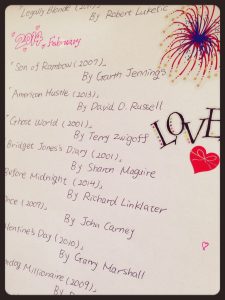 Legally Blonde
By Robert Luketic
2014. February
「Son of Rambow (2007)」
By Garth Jennings
「American Hustle (2013)」
By David O. Russell
「Ghost World (2001)」
By Terry Zwigoff
Bridget Jones's Diary (2001)」
By Sharon Maguire
Before Midnight (2014)」
By Richard Linklater
nce (2007)」
By John Carney
alentine's Day (2010)」
By Garry Marshall
Millionaire (2009)」
By
LOVE